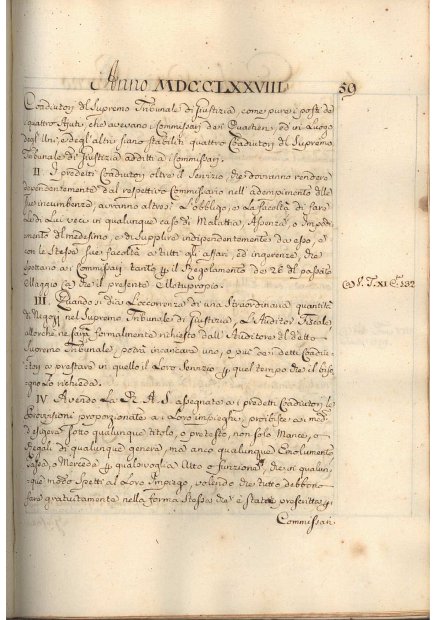 Anno MDCCLXXVIII
59
Coadiutori del Supremo Tribunale di Giustizia, come pure i posti de
quattro Ajuti, che avevano i Commissarj dei Quartieri, ed in Luogo
degl'Uni, e degl'altri siano stabiliti quattro Coadiutori del Supremo
Tribunale di Giustizia additti a i Commissarj.
II. I predetti Coadiutori oltre il Servizio, che dovranno rendere
dependentemente dal respettivo Commissario nell'adempimento delle
sue incumbenze, avranno altresì L'obbligo, e La facoltà di fare
Le di Lui veci in qualunque caso di Malattia, Assenza, o Impedi
mento del medesimo, e di Supplire independentemente da esso, e
con le Stesse sue facoltà a tutti gli affari, ed ingerenze, che
spettano a i Commissarj tanto p. il Regolamento de' 26 del passato
Maggio (a) che il presente Motuproprio.
(a) V. T. XI C. 132
III. Quando si dia L'occorrenza di una Straordinaria quantità
di Negozj nel Supremo Tribunale di Giustizia, L'Auditor Fiscale
allorchè ne sarà formalmente richiesto dall'Auditore di detto
Supremo Tribunale, potrà incaricare uno, o più dei detti Coadiu
tori a prestare in quello il Loro Servizio p. quel tempo che il biso
gno Lo richieda.
IV. Avendo La R. A. S. assegnate a i predetti Coadiutori le
Provvisioni proporzionate a i Loro impieghi, proibisce a i med.
d'esigere sotto qualunque titolo, o pretesto, non solo Mance, o
Regali di qualunque genere, ma anco qualunque Emolumento
Tassa, o Mercede p. qualsivoglia Atto o funzione, che in qualun,
que modo Spetti al Loro Impiego, volendo che tutto debbono
fare gratuitamente nella forma Stessa che è stata prescritta p. i
Commissarj